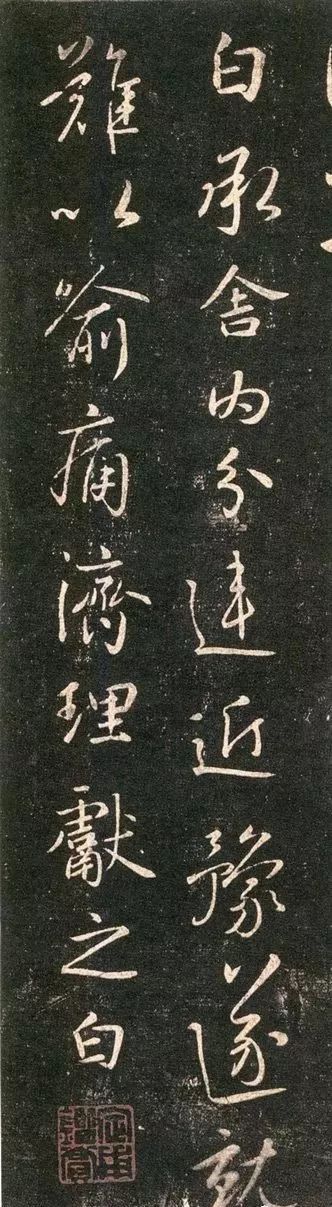 白承舍内分違近豫遂就
難以喻痛濟理獻之白